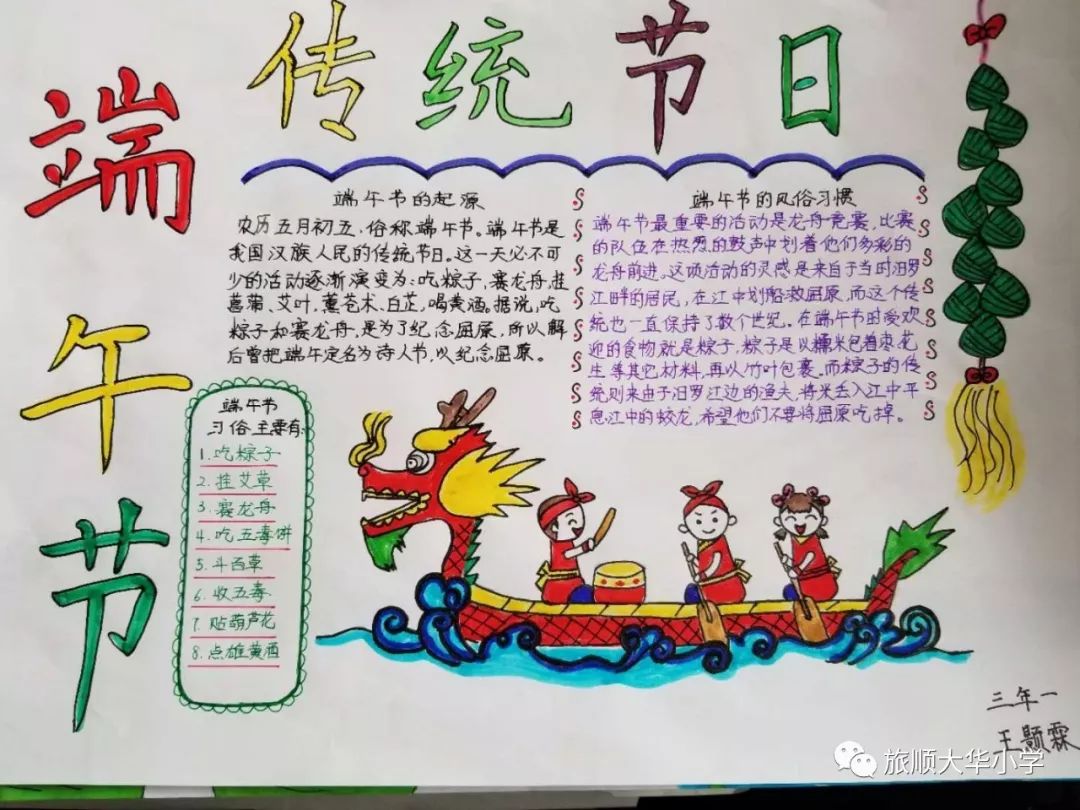 传统节日
端午节
端午节的起源
农历五月初五,俗称端午节。端午节是
我国汉族人民的传统节日。这一天必不可
少的活动逐渐演变为:吃粽子,赛龙舟,挂
菖蒲、艾叶,薰苍术、白芷,喝黄酒。据说,吃
粽子和赛龙舟,是为了纪念屈原,所以解
后曾把端午定名为诗人节,以纪念屈原。
端午节的风俗习惯
端午节最重要的活动是龙舟竞赛,比赛
的队伍在热烈的鼓声中划着他们多彩的
龙舟前进。这项活动的灵感是来自于当时汨罗
江畔的居民,在江中划船救屈原,而这个传
统也一直保持了数个世纪。在端午节时受欢
迎的食物就是粽子,粽子是以糯米包着枣花
生等其它材料,再以竹叶包裹。而粽子的传
统则来由于汨罗江边的渔夫,将米丢入江中平
息江中的蛟龙,希望他们不要将屈原吃掉。
端午节
习俗主要有:
1.吃粽子
2.挂艾草
3.赛龙舟
4.吃五毒饼
5.斗百草
6.收五毒
7.贴葫芦花
8.点雄黄酒
三年一
王颢霖
旅顺大华小学